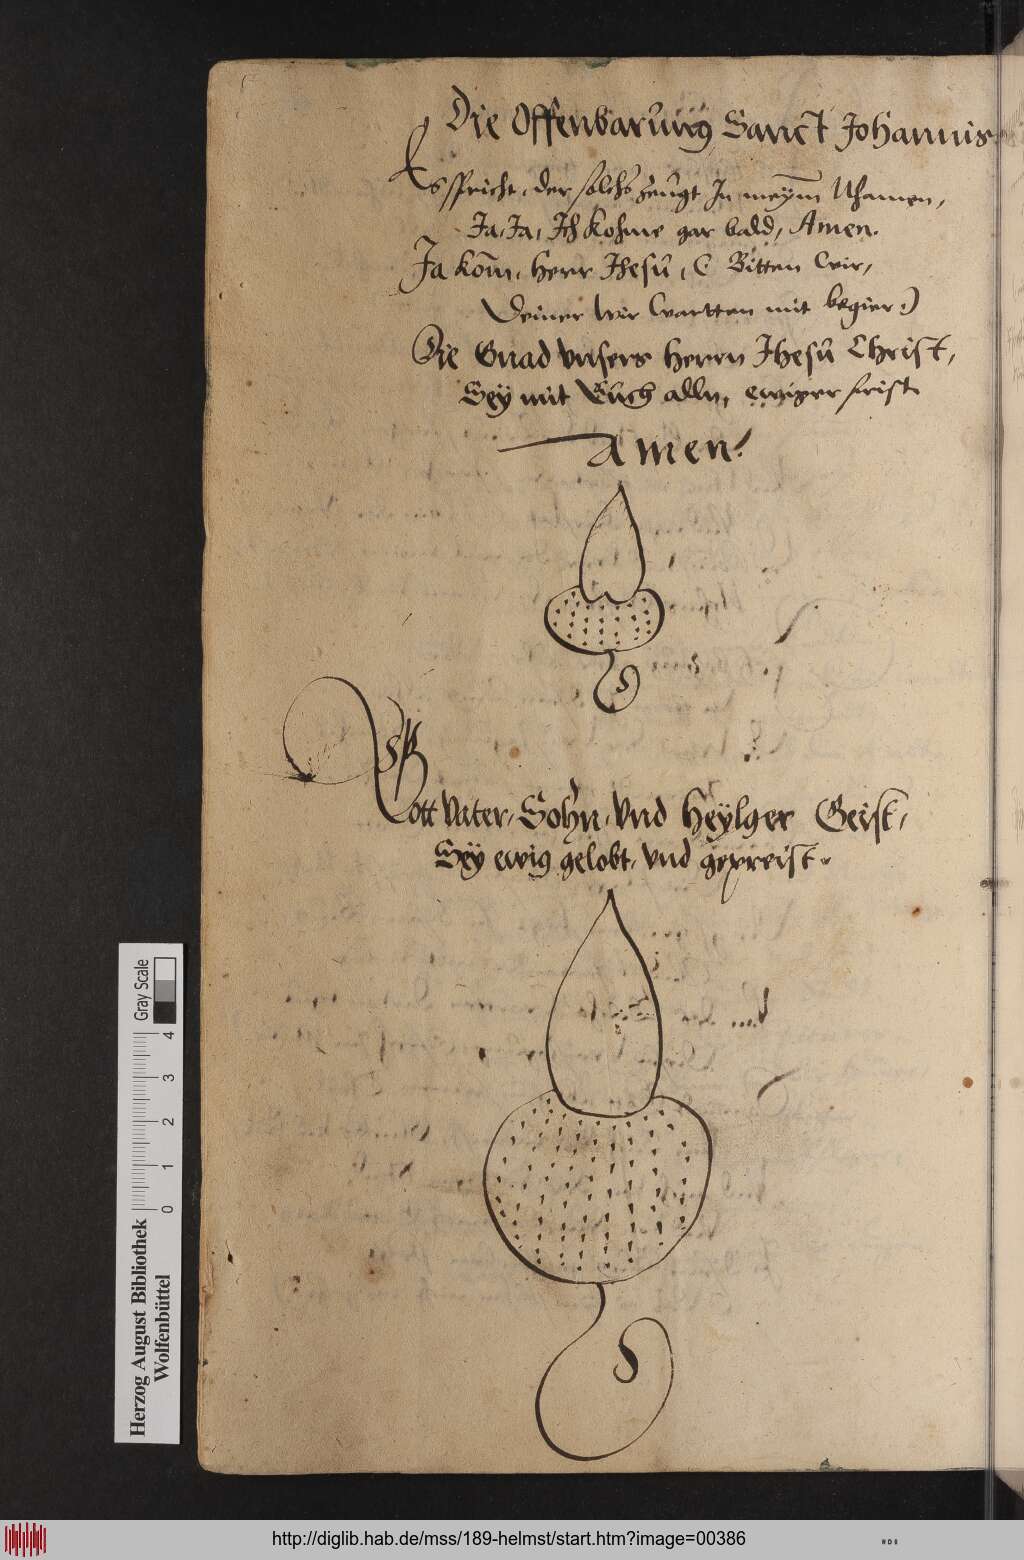 Die Offenbarung Sanct Johannis.
Es spricht, der solchs zeugt In meym Nhamen,
Ja, Ja, Ich kohme gar bald, Amen.
Ja kom̄, herr Jhesu, ( Bitten wir,
Deiner wir wartten mit begier:)
Die Gnad vnsers herrn Jhesu Christ,
Sey mit Euch alln, ewiger frist.
Amen.
Gott Vater, Sohn, Vnd Heÿlger Geist,
Seÿ ewig gelobt, vnd gepreist.
Herzog August Bibliothek
Wolfenbüttel
0 1 2 3 4
Gray Scale
http://diglib.hab.de/mss/189-helmst/start.htm?image=00386